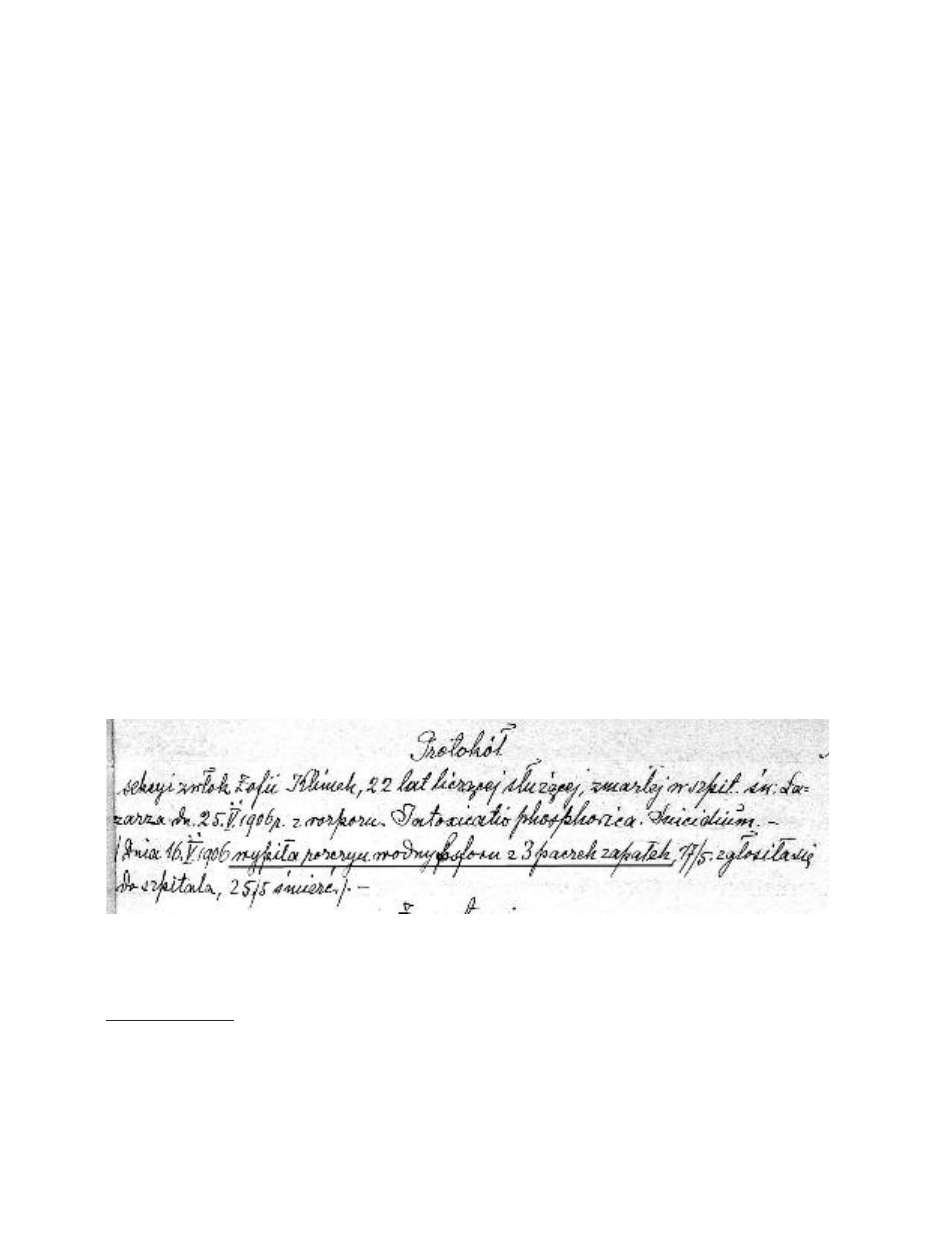 Protokół
sekcyi zwłok Zofii Klimek, 22 lat liczącej służącej, zmarłej w szpit. św. Ła=
zarza dn. 25.V.1906 r. z rozporu. Intoxicatio phosphorica. Suicidium. –
/ Dnia 16.V.1906 wypiła rozczyn wodny fosforu z 3 paczek zapałek, 17/5. zgłosiła się
do szpitala, 25/5 śmierć./. –